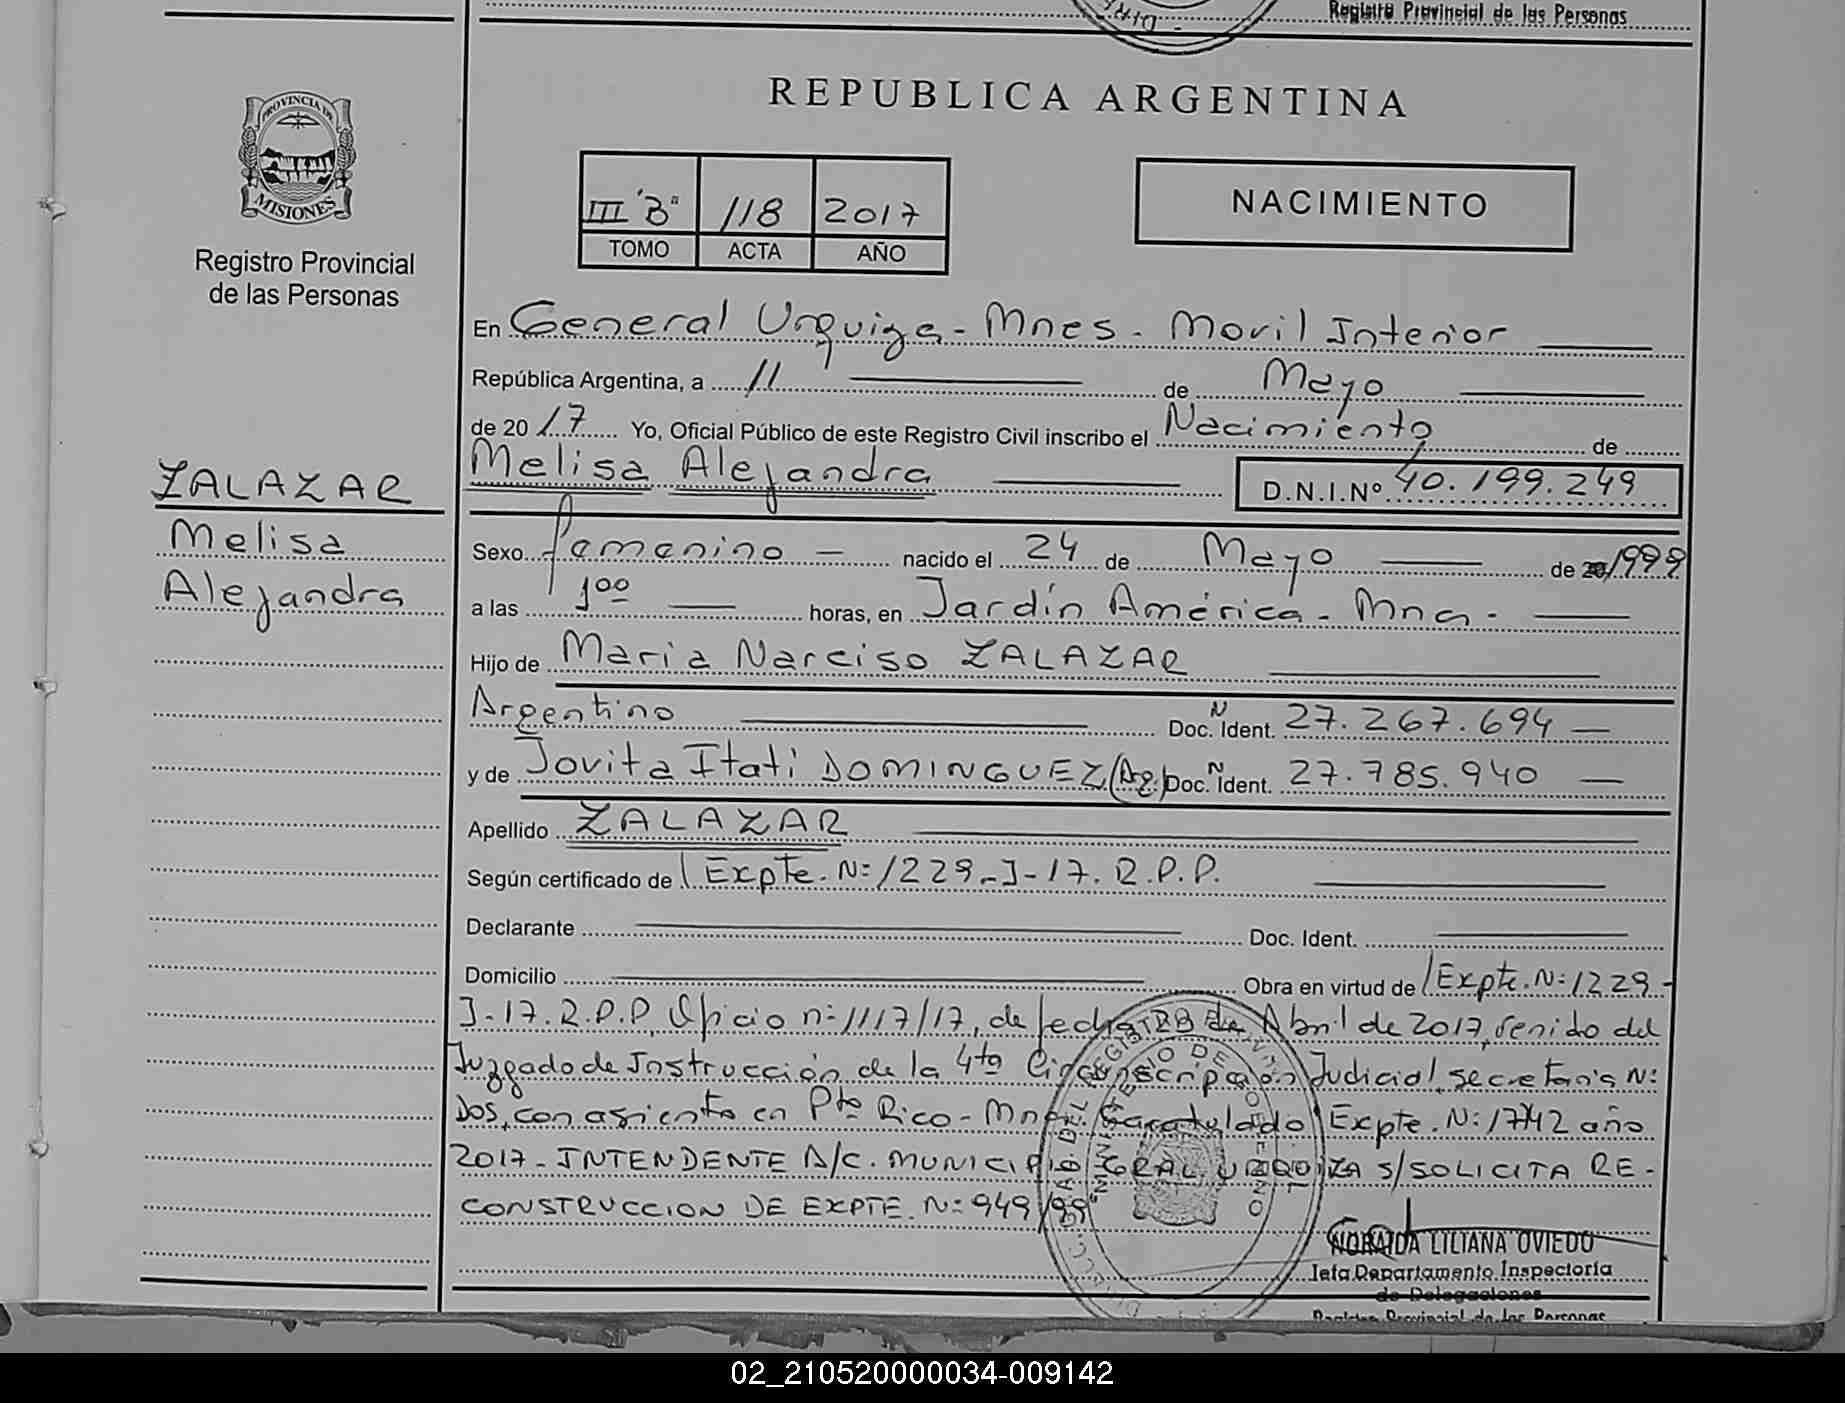 Registro Provincial de las Personas
REPUBLICA ARGENTINA
PROVINCIA DE
MISIONES
Registro Provincial
de las Personas
III "B" 118 2017
TOMO ACTA AÑO
NACIMIENTO
En General Urquiza - Mnes - Movil Interior
República Argentina, a 11 de Mayo
de 2017 Yo, Oficial Público de este Registro Civil inscribo el Nacimiento de
Melisa Alejandra D.N.I.Nº 40.199.249
ZALAZAR
Melisa
Alejandra
Sexo femenino nacido el 24 de Mayo de 1999
a las 1oo horas, en Jardín América - Mna -
Hijo de Maria Narciso ZALAZAR
Argentino Doc. N Ident. 27.267.694
y de Jovita Itati DOMINGUEZ (Arg.) Doc. N Ident. 27.785.940
Apellido ZALAZAR
Según certificado de Expte. Nº 1229-J-17. R.P.P.
Declarante Doc. Ident.
Domicilio Obra en virtud de Expte. Nº 1229-
J-17. R.P.P, Oficio nº 1117/17, de fecha de Abril de 2017, venido del
Juzgado de Instrucción de la 4ta Circunscripción Judicial, secretaria Nº
Dos, con asiento en Pto Rico - Mnes. Caratulado "Expte. Nº año
2017 - INTENDENTE A/C. MUNICIPIO GRAL URQUIZA S/SOLICITA RE-
CONSTRUCCION DE EXPTE. Nº 949/99"
NORAIDA LILIANA OVIEDO
Jefa Departamento Inspectoría
de Delegaciones
Registro Provincial de las Personas
02_210520000034-009142